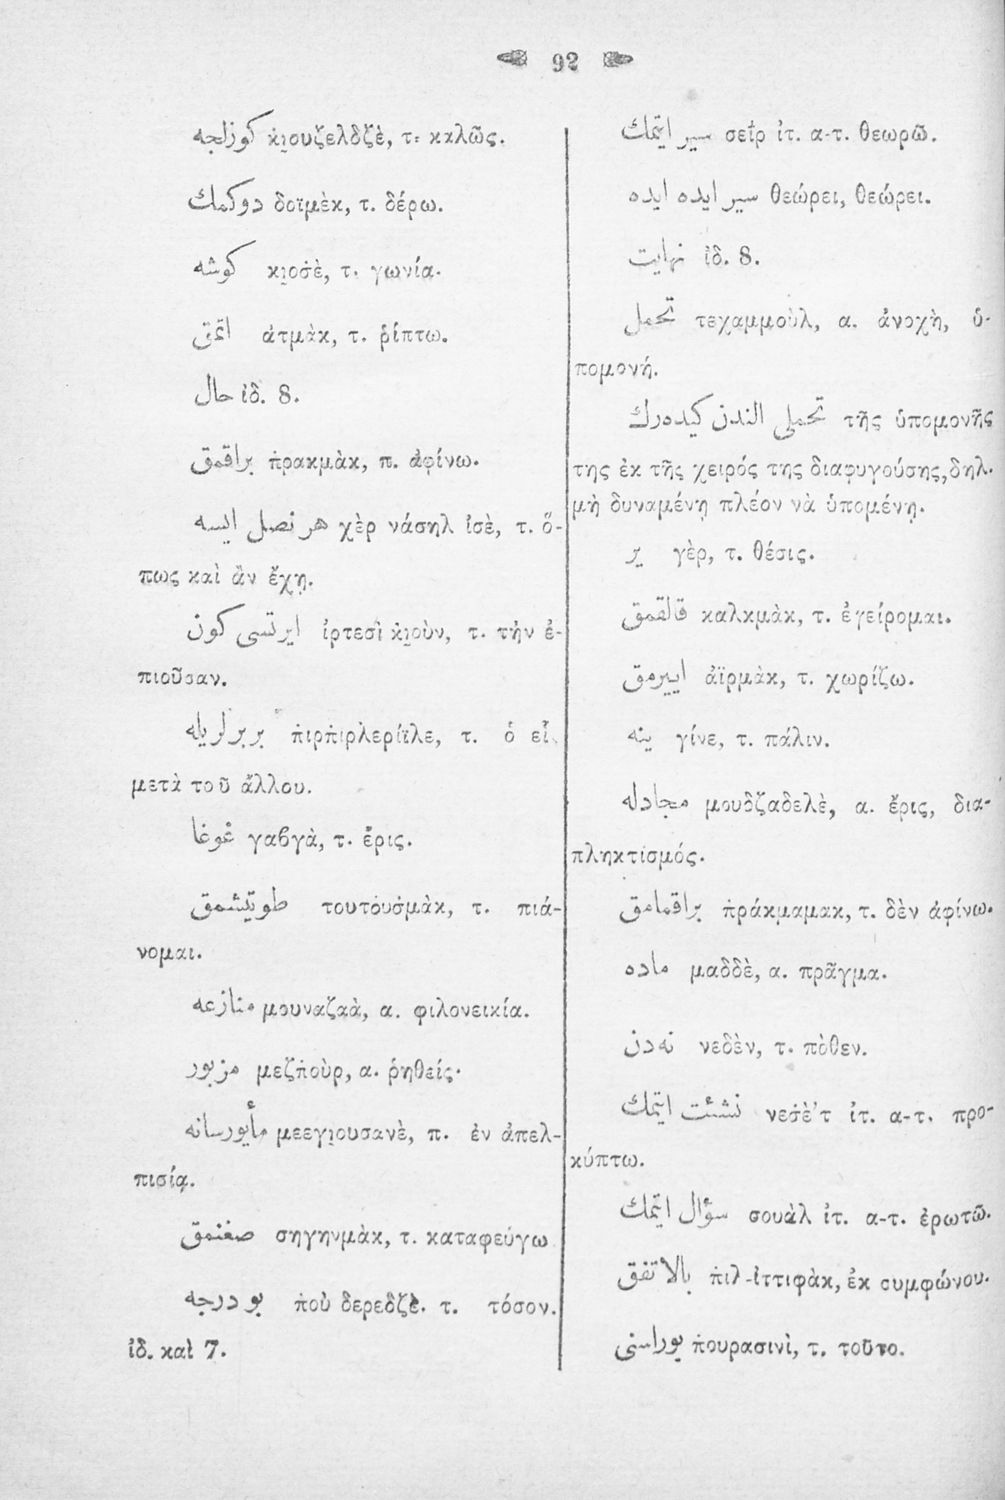 92
كوزلجه κ̇ι̯ουζελδζὲ, τ. καλῶς.
دوكمك δοϊμὲκ, τ. δέρω.
كوشه κι̯οσ̇ὲ, τ. γωνία.
اتمق ἀτμὰκ, τ. ῥίπτω.
حال ἰδ. 8.
براقمق π̇ρακμὰκ, π. ἀφίνω.
هر نصل ايسه χὲρ νάσηλ ἰσὲ, τ. ὅ-
πως καὶ ἂν ἔχῃ.
ايرتسى كون ἰρτεσὶ κ̇ι̯οὺν, τ. τὴν ἐ-
πιοῦσαν.
بربرلريله π̇ιρπ̇ιρλερίϊλε, τ. ὁ εἷ
μετὰ τοῦ ἄλλου.
غوغا γαβγὰ, τ. ἔρις.
طوتيشمق τουτουσ̇μὰκ, τ. πιά-
νομαι.
منازعه μουναζαὰ, α. φιλονεικία.
مزبور μεζπ̇οὺρ, α. ῥηθείς.
مأيورسانه μεεγι̯ουσανὲ, π. ἐν ἀπελ-
πισίᾳ.
صغنمق σηγηνμὰκ, τ. καταφεύγω
بو درجه π̇οὺ δερεδζὲ. τ. τόσον.
ἰδ. καὶ 7.
سير ايتمك σεΐρ ἰτ. α-τ. θεωρῶ.
سير ايده ايده θεώρει, θεώρει.
نهايت ἰδ. 8.
تحمل τεχαμμοὺλ, α. ἀνοχὴ, ὑ-
πομονή.
تحملى الندن كيدەرك τῆς ὑπομονῆς
της ἐκ τῆς χειρός της διαφυγούσης, δηλ.
μὴ δυναμένη πλέον νὰ ὑπομένῃ.
ير γὲρ, τ. θέσις.
قالقمق καλκμὰκ, τ. ἐγείρομαι.
اييرمق ἀϊρμὰκ, τ. χωρίζω.
ينه γίνε, τ. πάλιν.
مجادله μουδζαδελὲ, α. ἔρις, δια-
πληκτισμός.
براقمامق π̇ράκμαμακ, τ. δὲν ἀφίνω.
ماده μαδδὲ, α. πρᾶγμα.
نەدن νεδὲν, τ. πὸθεν.
نشئت ايتمك νεσ̇ὲ'τ ἰτ. α-τ. προ-
κύπτω.
سؤال ايتمك σουὰλ ἰτ. α-τ. ἐρωτῶ.
بالاتفق π̇ιλ-ἰττιφὰκ, ἐκ συμφώνου.
بوراسنى π̇ουρασινὶ, τ. τοῦτο.